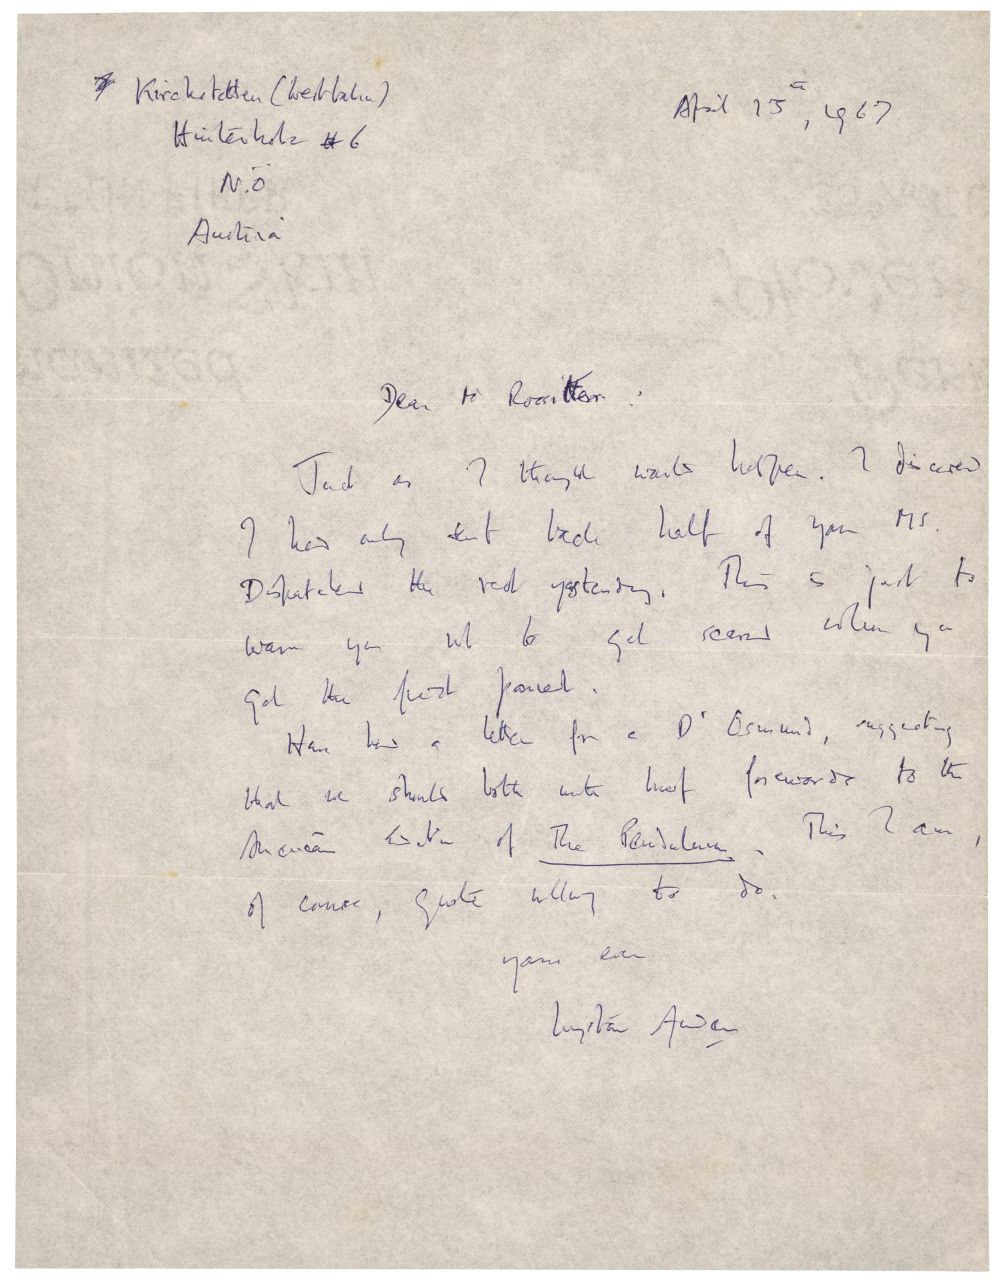 Kirchstetten (Westbahn)
Hinterholz # 6
N.Ö
Austria
April 25th, 1967
Dear Mr
Just as I thought would happen. I discovered
I had only sent back half of your MS.
Dispatched the rest yesterday. This is just to
warn you not to get scared when you
get the first parcel.
Have had a letter from a Dr Osmund, suggesting
that we should both write brief forewords to the
American Edition of The Pendulum. This I am,
of course, quite willing to do.
yours ever
Wystan Auden